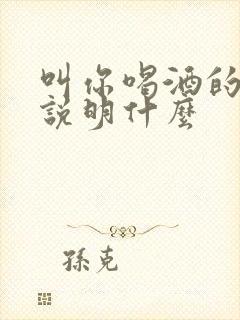 叫你喝酒的
說明什麼
孫克